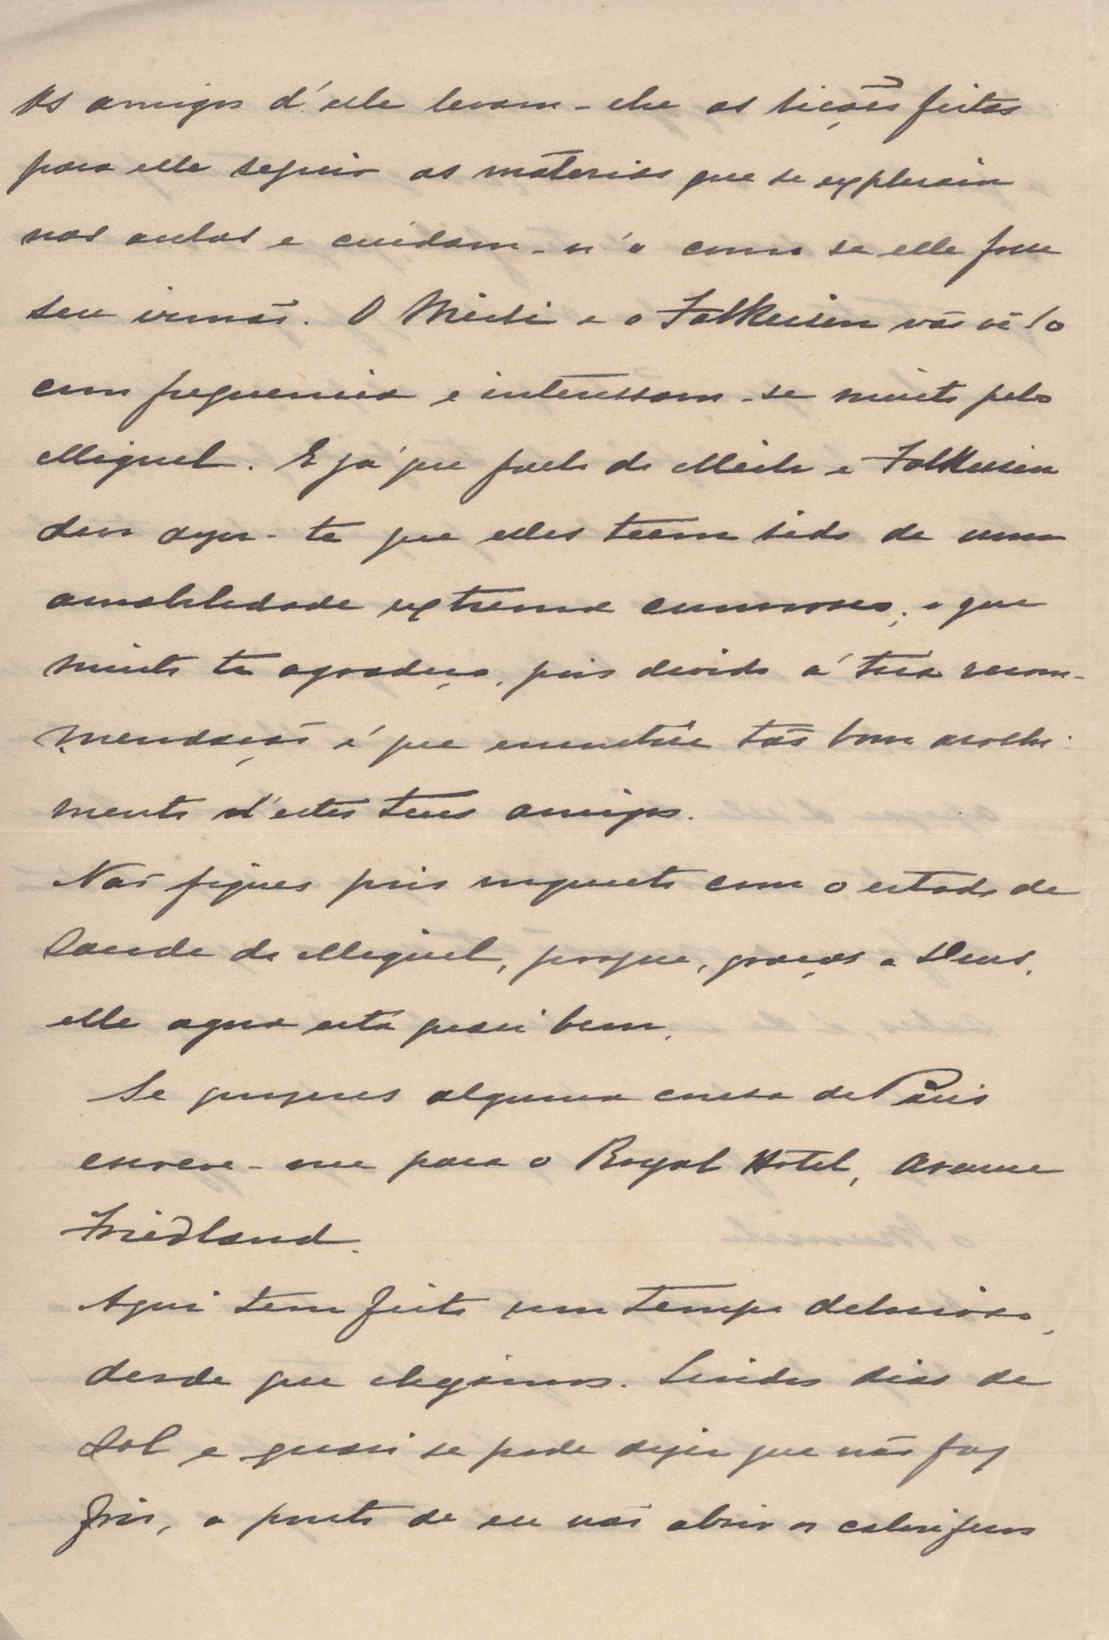 Os amigos d'elle levam-lhe as lições feitas
para elle seguir as materias que se explicam
nas aulas e cuidam-n'o como se elle fosse
seu irmão. O Meili e o Falkeisen vão vê-lo
com frequencia e interessam-se muito pelo
Miguel. E já que fallo do Meili e Falkeisen
devo dizer-te que elles teem sido de uma
amabilidade extrema comnosco; o que
muito te agradeço, pois devido á tua recom-
mendação é que encontrei tão bom acolhi-
mento d'estes teus amigos.
Não fiques pois inquieto com o estado de
saude do Miguel, porque, graças a Deus,
elle agora está quasi bem.
Se quizeres alguma cousa de Paris
escreve-me para o Royal Hotel, Avenue
Friedland.
Aqui tem feito um tempo delicioso,
desde que chegámos. Lindos dias de
sol e quasi se pode dizer que não faz
frio, a ponto de eu não abrir os caloriferos